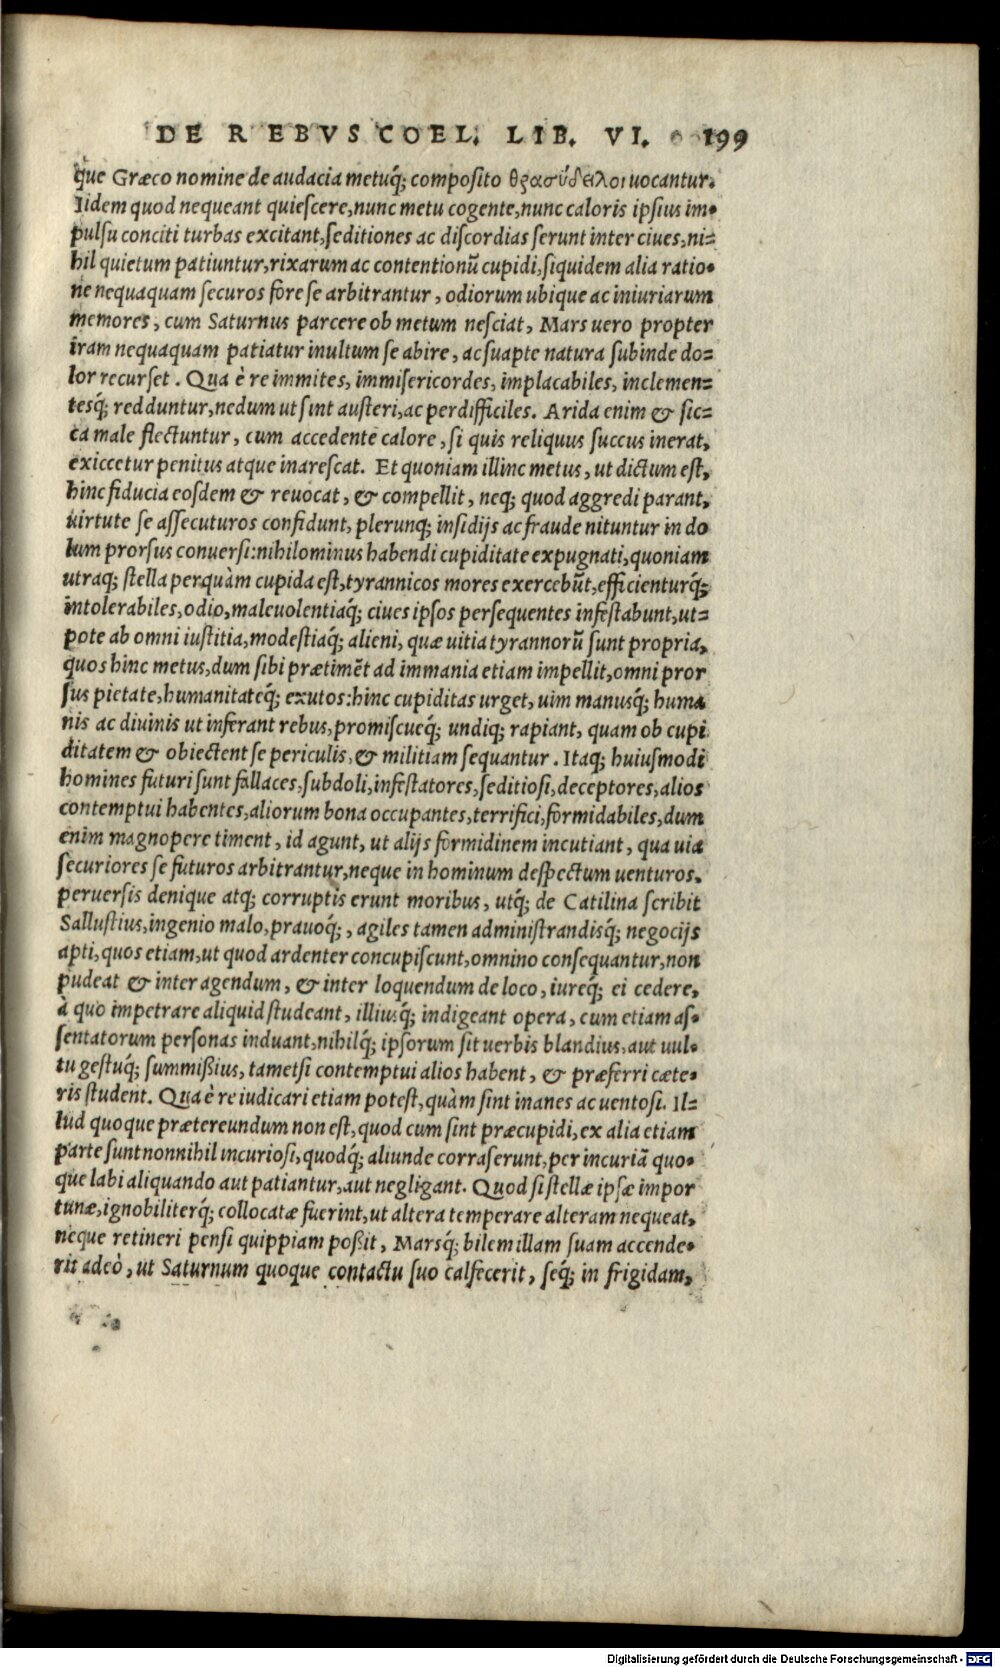 DE REBVS COEL. LIB. VI. 199
que Græco nomine de audacia metuq́; composito θρασύδειλοι uocantur.
Iidem quod nequeant quiescere, nunc metu cogente, nunc caloris ipsius im-
pulsu conciti turbas excitant, seditiones ac discordias serunt inter ciues, ni-
hil quietum patiuntur, rixarum ac contentionū cupidi, siquidem alia ratio-
ne nequaquam securos fore se arbitrantur, odiorum ubique ac iniuriarum
memores, cum Saturnus parcere ob metum nesciat, Mars uero propter
iram nequaquam patiatur inultum se abire, ac suapte natura subinde do-
lor recurset. Qua è re immites, immisericordes, implacabiles, inclemen-
tesq́; redduntur, nedum ut sint austeri, ac perdifficiles. Arida enim & sic-
ca male flectuntur, cum accedente calore, si quis reliquus succus inerat,
exiccetur penitus atque inarescat. Et quoniam illinc metus, ut dictum est,
hinc fiducia eosdem & reuocat, & compellit, neq; quod aggredi parant,
uirtute se assecuturos confidunt, plerunq; insidijs ac fraude nituntur in do
lum prorsus conuersi: nihilominus habendi cupiditate expugnati, quoniam
utraq; stella perquàm cupida est, tyrannicos mores exercebūt, efficienturq́;
intolerabiles, odio, maleuolentiaq́; ciues ipsos persequentes infestabunt, ut-
pote ab omni iustitia, modestiaq́; alieni, quæ uitia tyrannorū sunt propria,
quos hinc metus, dum sibi prætimēt ad immania etiam impellit, omni pror
sus pietate, humanitateq́; exutos: hinc cupiditas urget, uim manusq́; huma
nis ac diuinis ut inferant rebus, promiscueq́; undiq; rapiant, quam ob cupi
ditatem & obiectent se periculis, & militiam sequantur. Itaq; huiusmodi
homines futuri sunt fallaces, subdoli, infestatores, seditiosi, deceptores, alios
contemptui habentes, aliorum bona occupantes, terrifici, formidabiles, dum
enim magnopere timent, id agunt, ut alijs formidinem incutiant, qua uia
securiores se futuros arbitrantur, neque in hominum despectum uenturos.
peruersis denique atq; corruptis erunt moribus, utq́; de Catilina scribit
Sallustius, ingenio malo, prauoq́;, agiles tamen administrandisq́; negocijs
apti, quos etiam, ut quod ardenter concupiscunt, omnino consequantur, non
pudeat & inter agendum, & inter loquendum de loco, iureq́; ei cedere,
à quo impetrare aliquid studeant, illiusq́; indigeant opera, cum etiam as-
sentatorum personas induant, nihilq́; ipsorum sit uerbis blandius, aut uul-
tu gestuq́; summißius, tametsi contemptui alios habent, & præferri cæte-
ris student. Qua è re iudicari etiam potest, quàm sint inanes ac uentosi. Il-
lud quoque prætereundum non est, quod cum sint præcupidi, ex alia etiam
parte sunt nonnihil incuriosi, quodq́; aliunde corraserunt, per incuriā quo-
que labi aliquando aut patiantur, aut negligant. Quod si stellæ ipsæ impor
tunæ, ignobiliterq́; collocatæ fuerint, ut altera temperare alteram nequeat,
neque retineri pensi quippiam poßit, Marsq́; bilem illam suam accende-
rit adeò, ut Saturnum quoque contactu suo calfecerit, seq́; in frigidam,
Digitalisierung gefördert durch die Deutsche Forschungsgemeinschaft - DFG